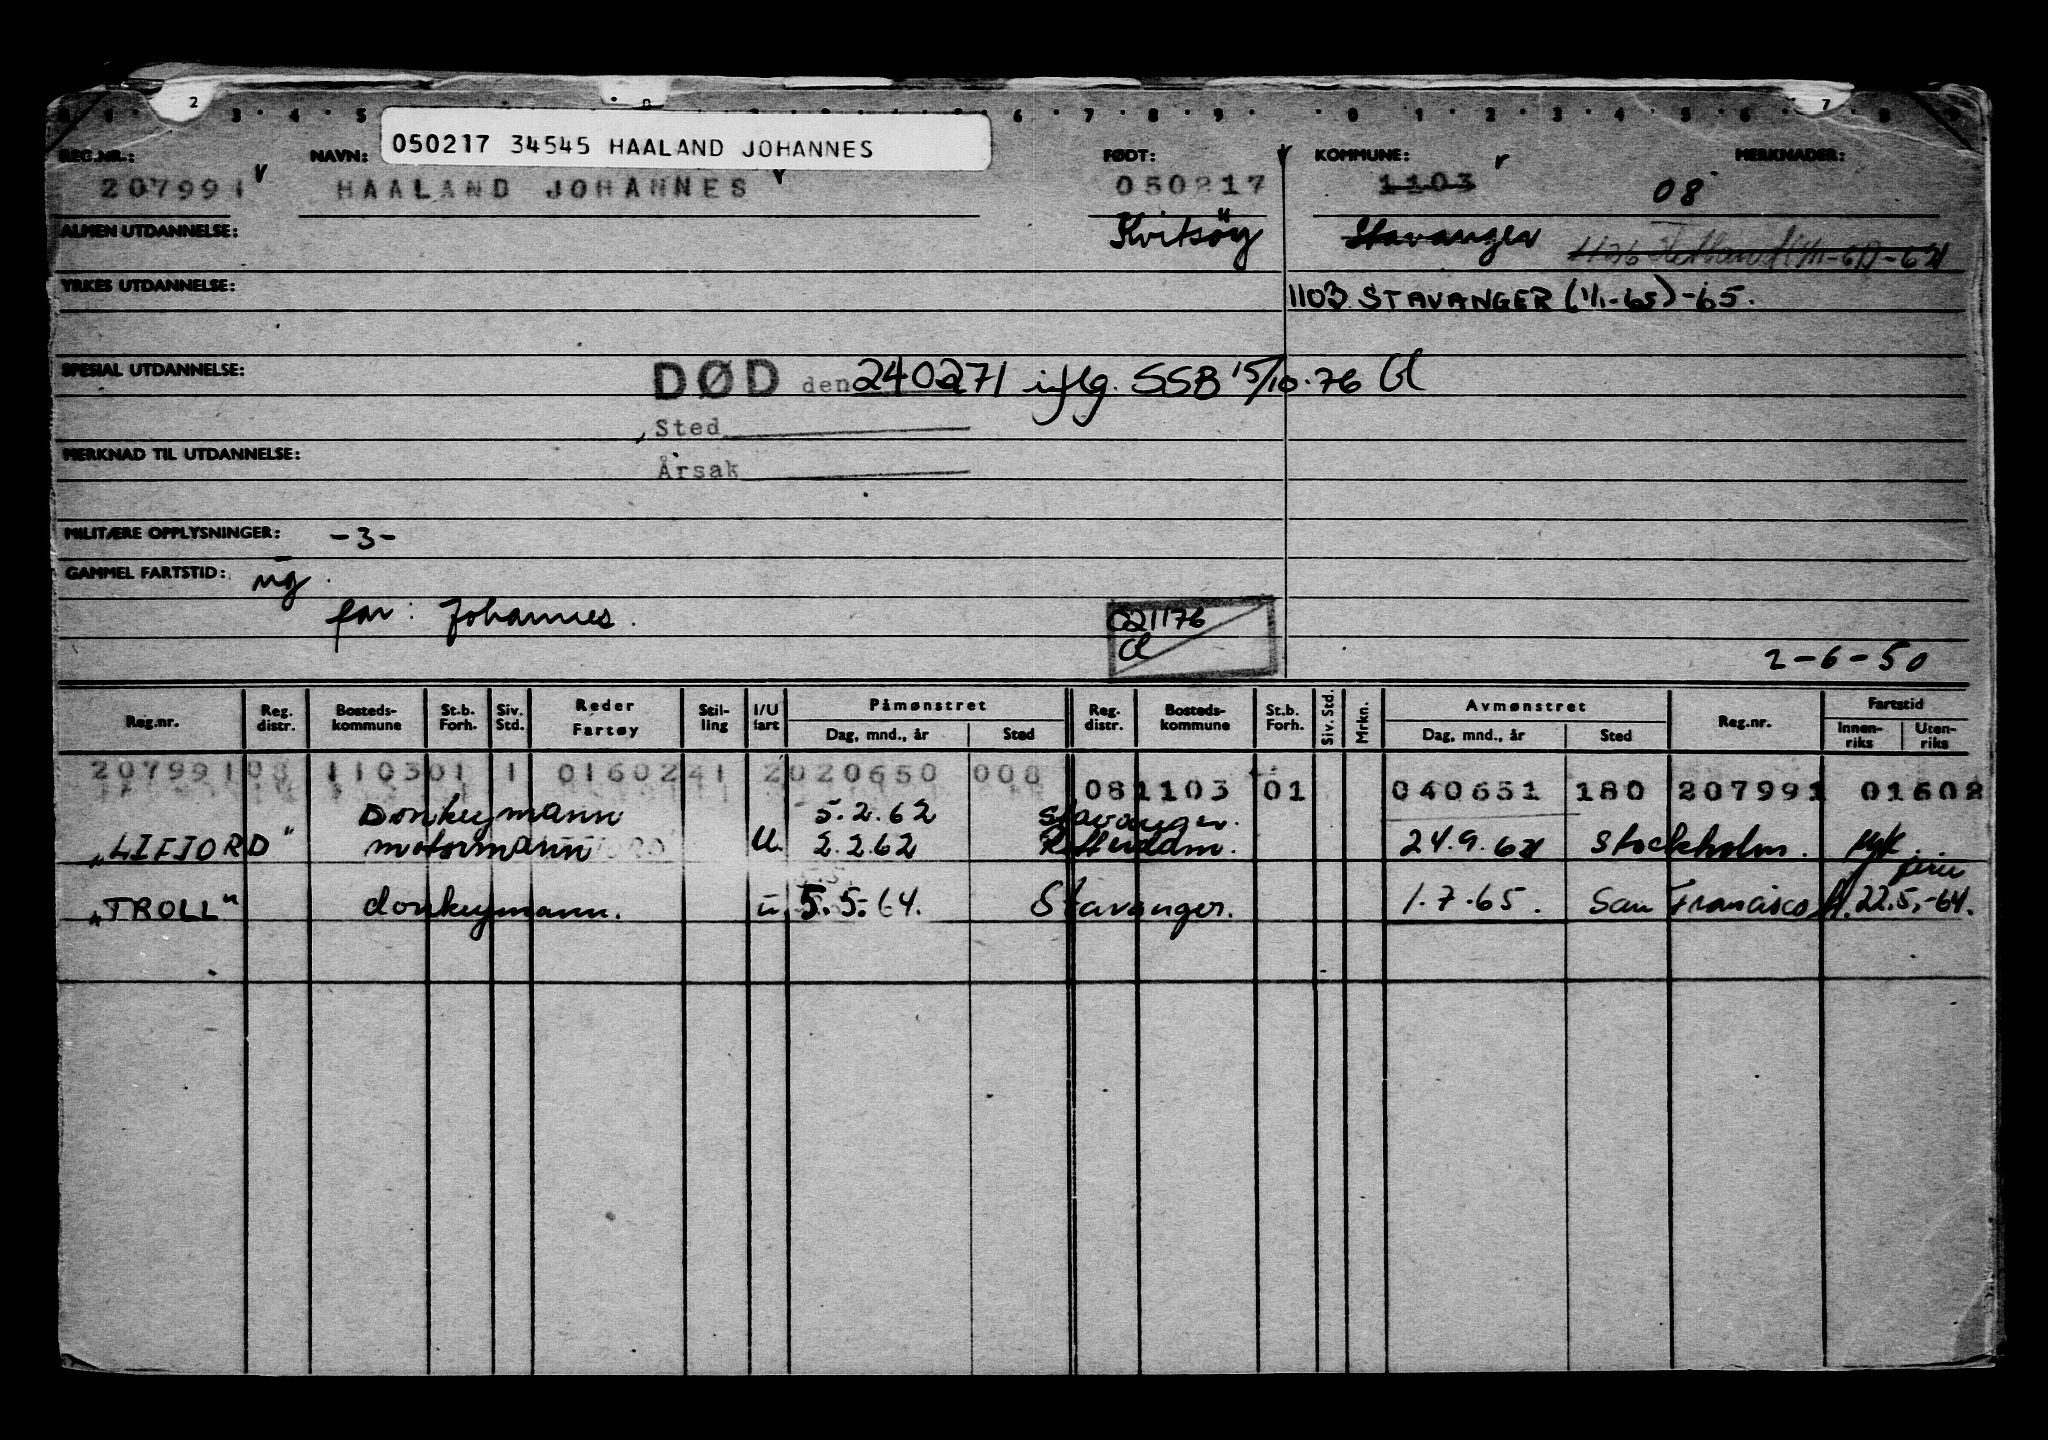 050217 34545 HAALAND JOHANNES
REG.NR.: NAVN: FØDT: KOMMUNE: MERKNADER:
207991 HAALAND JOHANNES 050217 1103 08
ALMEN UTDANNELSE: Kvitsöy Stavanger
YRKES UTDANNELSE: 1103 STAVANGER (1/1-65)-65.
SPESIAL UTDANNELSE: DØD den 240271 iflg. SSB 15/10-76
Sted
MERKNAD TIL UTDANNELSE:
Årsak
MILITÆRE OPPLYSNINGER: -3-
GAMMEL FARTSTID: ug
far: Johannes.
021176
2-6-50
Reg.nr. Reg. distr. Bosteds-kommune St.b. Forh. Siv. Std. Reder Fartøy Stil-ling I/U fart Påmønstret Dag, mnd., år Sted Reg. distr. Bosteds-kommune St.b. Forh. Siv. Std. Mrkn. Avmønstret Dag, mnd., år Sted Reg.nr. Fartstid Innen-riks Uten-riks
207991 08 1103 01 1 0160241 2 020650 008 08 1103 01 040651 180 207991 01602
Donkeymann 5.2.62 Stavanger.
"LIFJORD" motormann U. 2.2.62 Rotterdam. 24.9.62 Stockholm.
"TROLL" donkeymann. u 5.5.64. Stavanger. 1.7.65. San Francisco 22.5.-64.